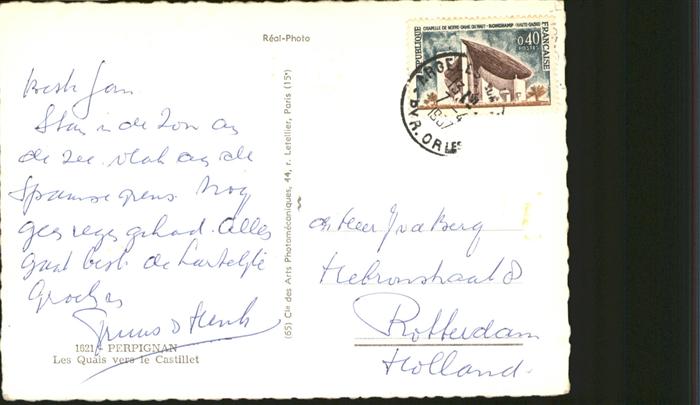 Réal-Photo
RÉPUBLIQUE FRANÇAISE
CHAPELLE DE NOTRE-DAME DU HAUT - RONCHAMP (HAUTE-SAÔNE)
0,40
POSTES
ARGELES
PYR. ORLES
Beste Jan
Sta in de Zon aan
de zee. vlak aan de
Spaanse grens. Nog
geen regen gehad. Alles
gaat best. de hartelijke
Groeten
Henk
1621 - PERPIGNAN
Les Quais vers le Castillet
(65) Cie des Arts Photomécaniques, 44, r. Letellier, Paris (15e)
de Heer J v d Berg
Hebronstraat 8
Rotterdam
Holland